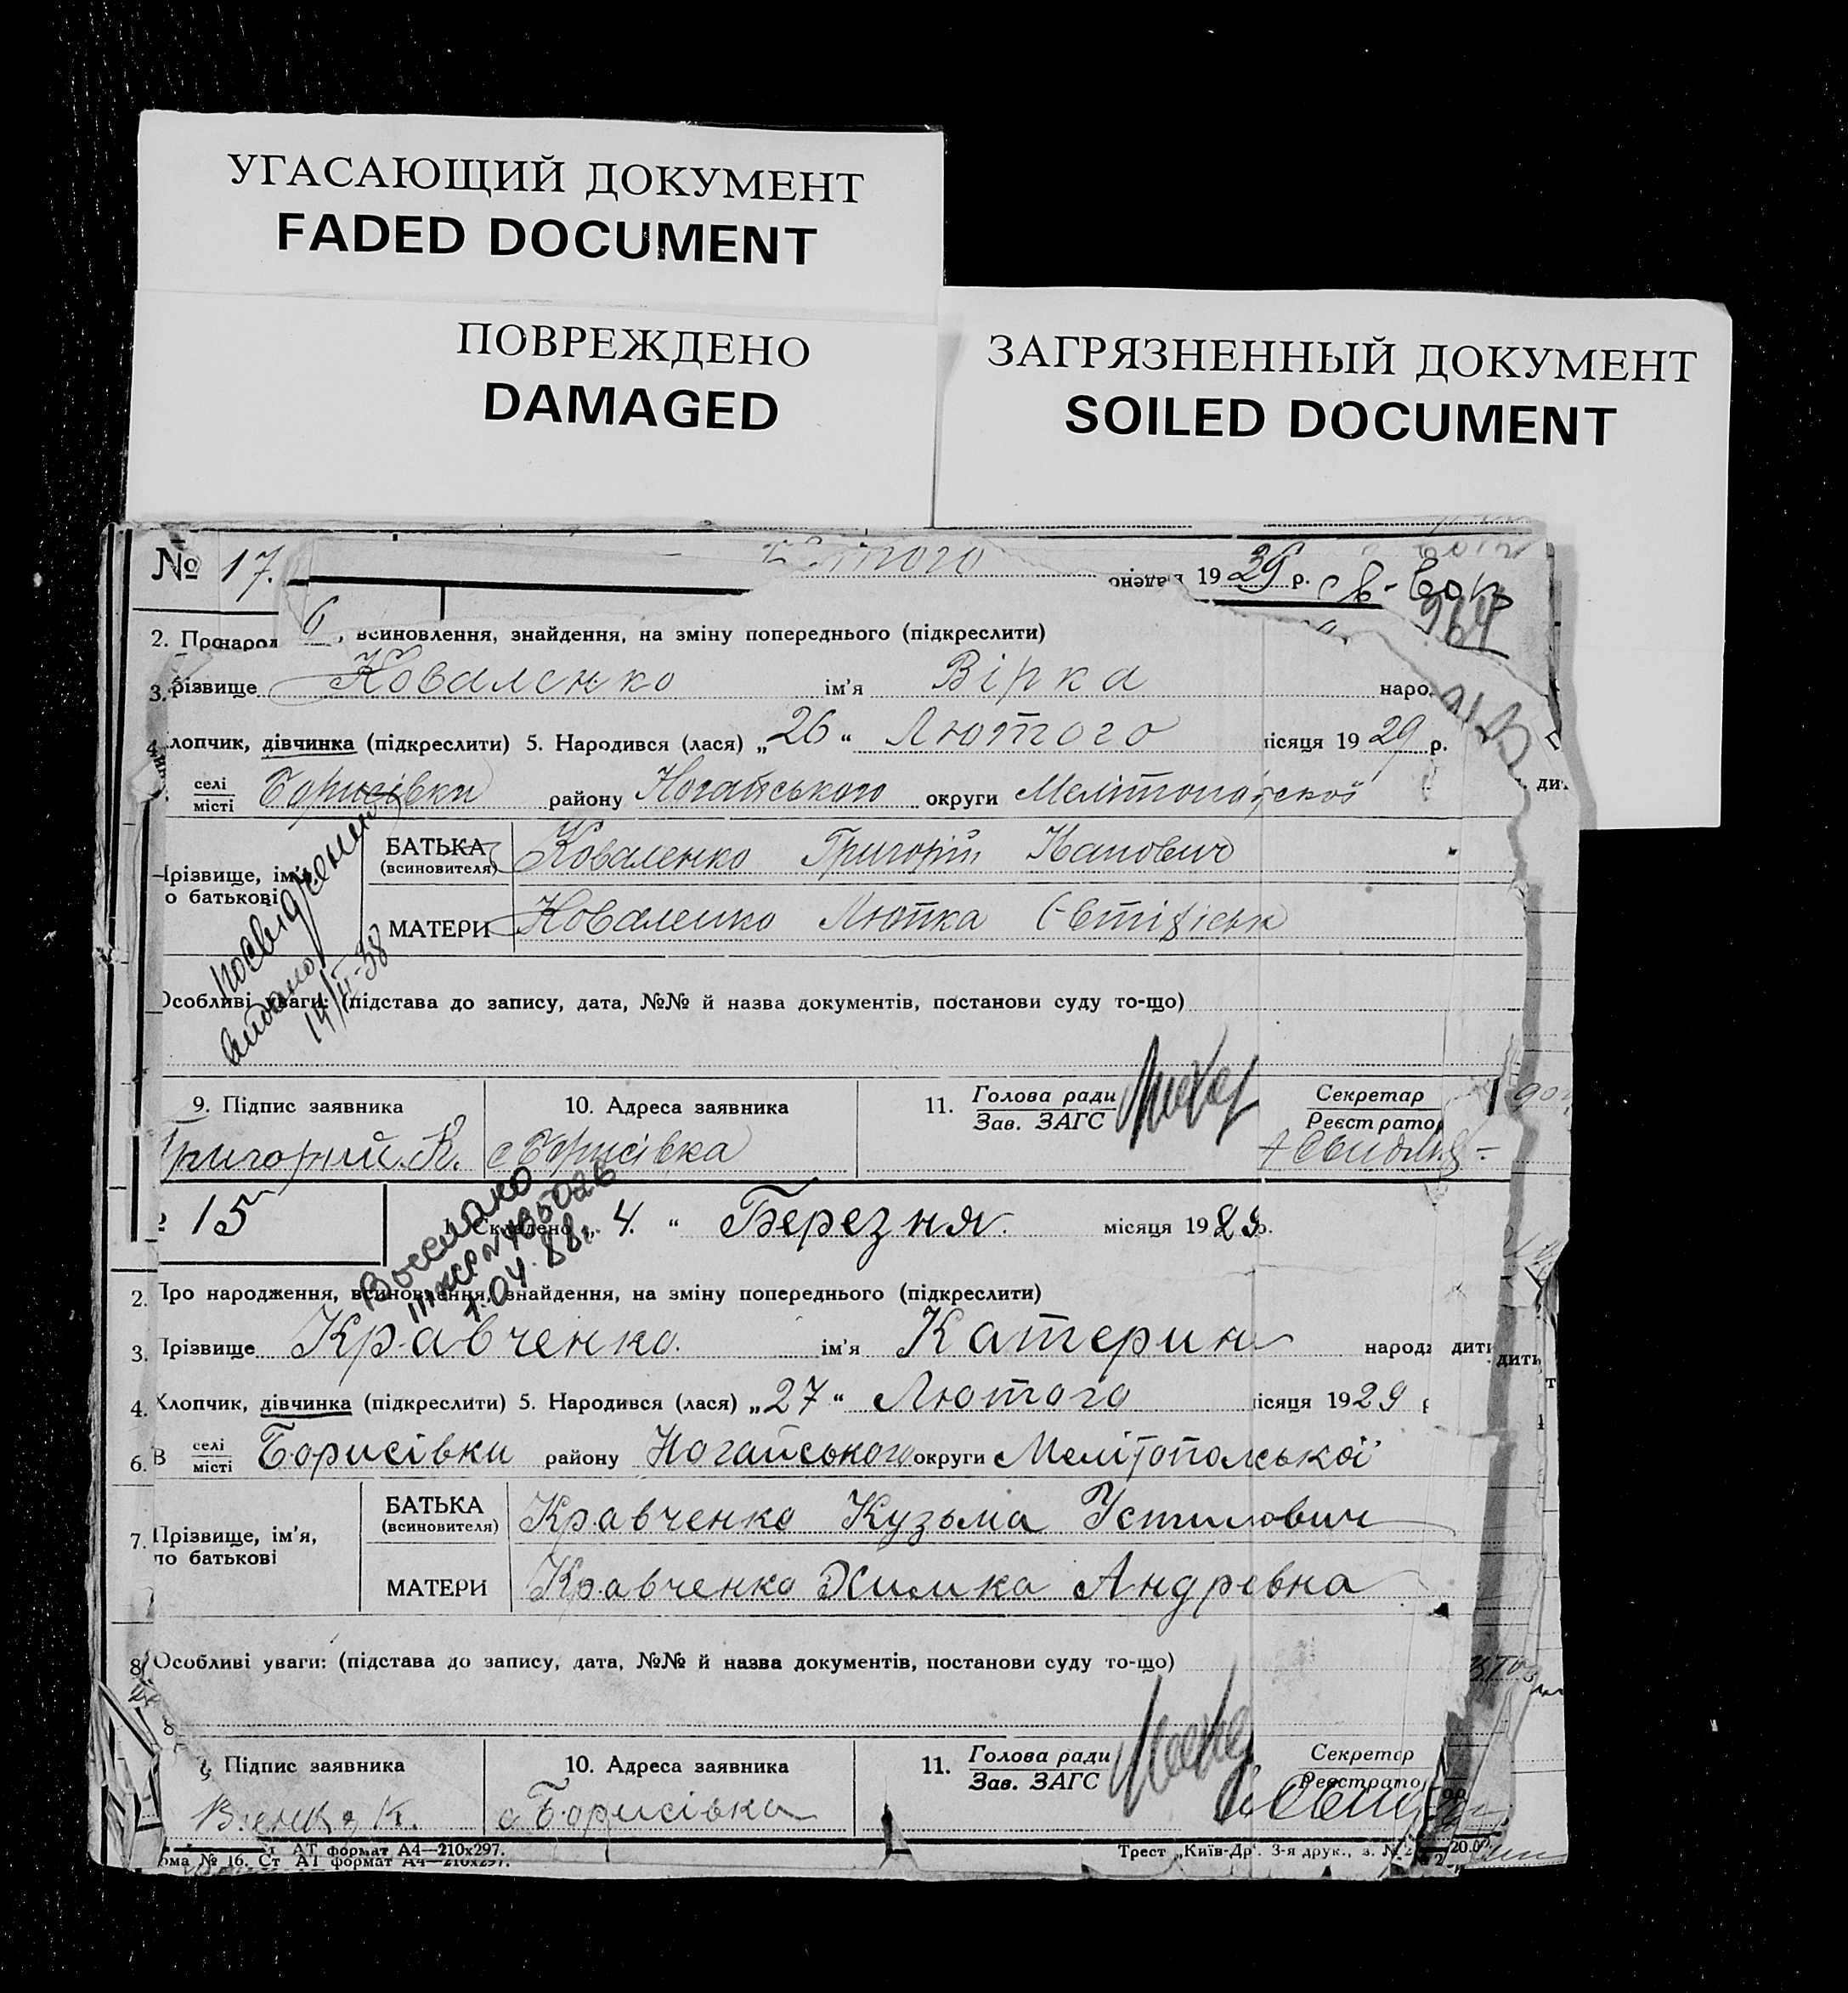 УГАСАЮЩИЙ ДОКУМЕНТ
FADED DOCUMENT
ПОВРЕЖДЕНО
DAMAGED
ЗАГРЯЗНЕННЫЙ ДОКУМЕНТ
SOILED DOCUMENT
№ 17. 19 29 р.
964
2. Про народ , всиновлення, знайдення, на зміну попереднього (підкреслити)
3. різвище Коваленко ім'я Вірка наро
4. лопчик, дівчинка (підкреслити) 5. Народився (лася) „26“ Лютого місяця 19 29 р.
селі
місті Борисівки району Ногайського округи Мелітопольської
Прізвище, ім'я,
о батькові
БАТЬКА
(всиновителя) Коваленко Григорій
МАТЕРИ Коваленко
посвідчення
видано
14/II-38
Особливі уваги: (підстава до запису, дата, №№ й назва документів, постанови суду то-що)
9. Підпис заявника 10. Адреса заявника 11. Голова ради
Зав. ЗАГС Секретар
Реєстратор
Григорий К. с Борисівка
15 1. Складено „4“ Березня місяця 1929р.
1.04.88г.
2. Про народження, всиновлення, знайдення, на зміну попереднього (підкреслити)
3. Прізвище Кравченко ім'я Катерин народ дить
4. Хлопчик, дівчинка (підкреслити) 5. Народився (лася) „27“ Лютого місяця 1929 р
6. В селі
місті Борисівки району Ногайського округи Мелітопольської
7. Прізвище, ім'я,
по батькові
БАТЬКА
(всиновителя) Кравченко Кузьма Устимович
МАТЕРИ Кравченко Химка Андревна
8. Особливі уваги: (підстава до запису, дата, №№ й назва документів, постанови суду то-що)
Підпис заявника 10. Адреса заявника 11. Голова ради
Зав. ЗАГС Секретар
Реєстрато
К. с Борисівка
АТ формат А4—210х297.
ома № 16. Ст АТ формат А4—210х297.
Трест „Київ-Др". 3-я друк., з. №